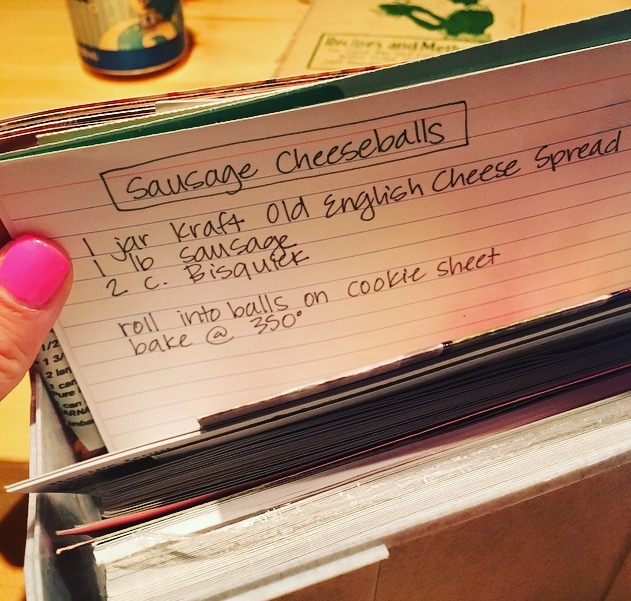 Recipes and Meth
Sausage Cheeseballs
1 jar Kraft Old English Cheese Spread
1 lb sausage
2 c. Bisquick
roll into balls on cookie sheet
bake @ 350°
1/2
1 3/
1 can